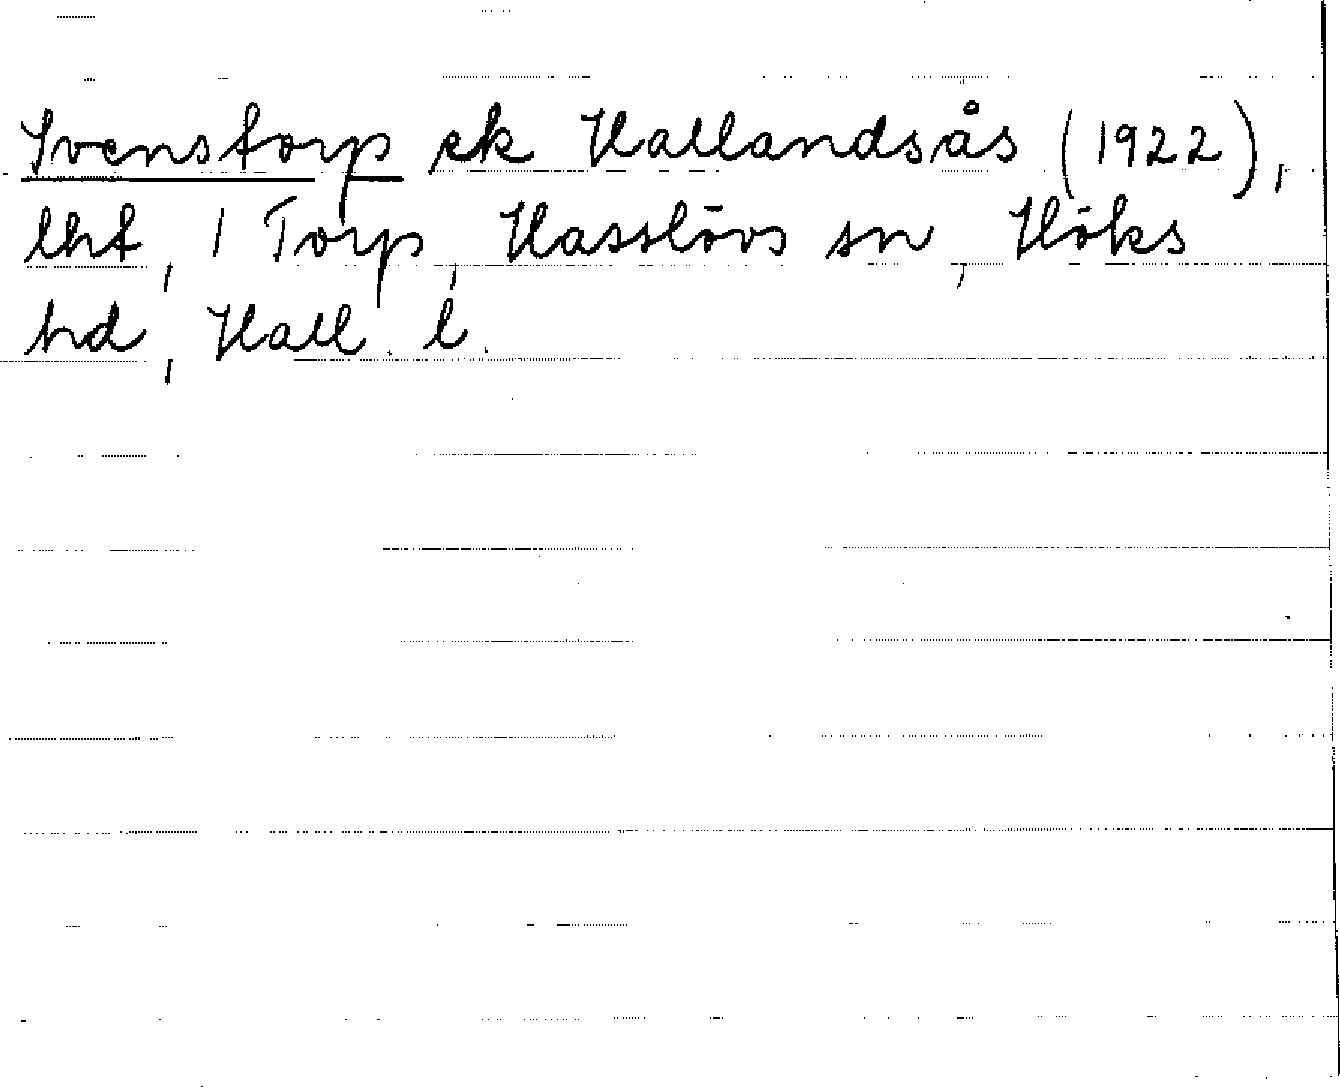 Svenstorp ek Hallandsås (1922),
lht, 1 Torp, Hasslövs sn, Höks
hd, Hall. l.